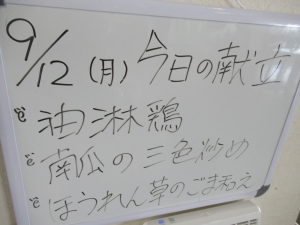 9/12(月)今日の献立
油淋鶏
南瓜の三色炒め
ほうれん草のごま和え